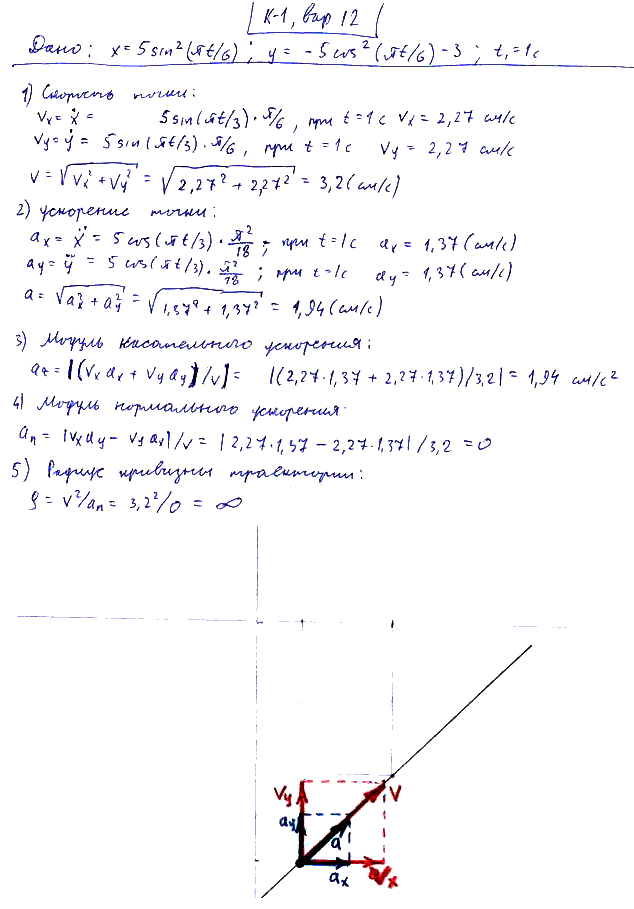 К-1, вар 12
Дано: x = 5 sin²(πt/6); y = -5 cos²(πt/6) - 3; t₁ = 1 с
1) Скорость точки:
Vx = ẋ = 5 sin(πt/3)·π/6, при t = 1 с Vx = 2,27 см/с
Vy = ẏ = 5 sin(πt/3)·π/6, при t = 1 с Vy = 2,27 см/с
V = √(Vx² + Vy²) = √(2,27² + 2,27²) = 3,2 (см/с)
2) ускорение точки:
ax = ẍ = 5 cos(πt/3)·π²/18; при t = 1 с ax = 1,37 (см/с)
ay = ÿ = 5 cos(πt/3)·π²/18; при t = 1 с ay = 1,37 (см/с)
a = √(ax² + ay²) = √(1,37² + 1,37²) = 1,94 (см/с)
3) Модуль касательного ускорения:
aτ = |(Vx ax + Vy ay)/V| = |(2,27·1,37 + 2,27·1,37)/3,2| = 1,94 см/с²
4) Модуль нормального ускорения
an = |Vx ay - Vy ax|/V = |2,27·1,37 - 2,27·1,37|/3,2 = 0
5) Радиус кривизны траектории:
ρ = V²/an = 3,2²/0 = ∞
Vy
V
ay
a
ax
Vx